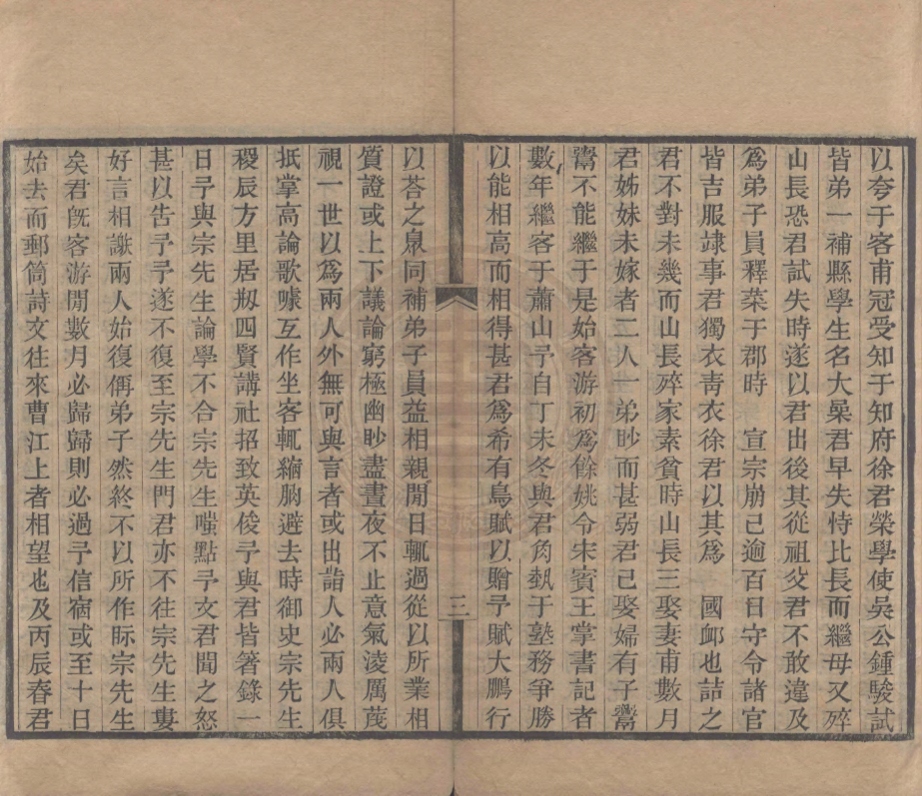 以夸于客甫冠受知于知府徐君榮學使吳公鍾駿試
皆弟一補縣學生名大㬥君早失恃比長而繼母又殁
山長恐君試失時遂以君出後其從祖父君不敢違及
爲弟子員釋菜于郡時　宣宗崩已逾百日守令諸官
皆吉服䜿事君獨衣青衣徐君以其爲　國卹也詰之
君不對未幾而山長殁家素貧時山長三娶妻甫數月
君姊妹未嫁者二人一弟眇而甚弱君已娶婦有子鬻
鬻不能繼于是始客游初爲餘姚令宋賓王掌書記者
數年繼客于蕭山予自丁未冬與君角埶于塾務爭勝
以能相高而相得甚君爲希有鳥賦以贈予賦大鵬行
三
以荅之臮同補弟子員益相親閒日輒過從以所業相
質證或上下議論窮極幽眇盡晝夜不止意氣淩厲蔑
視一世以爲兩人外無可與言者或出詣人必兩人俱
抵掌高論歌噱互作坐客輒縮朒避去時御史宗先生
稷辰方里居刱四賢講社招致英俊予與君皆箸錄一
日予與宗先生論學不合宗先生嗤點予文君聞之怒
甚以告予予遂不復至宗先生門君亦不往宗先生婁
好言相謝兩人始復偁弟子然終不以所作眎宗先生
矣君旣客游閒數月必歸歸則必過予信宿或至十日
始去而郵筒詩文往來曹江上者相望也及丙辰春君